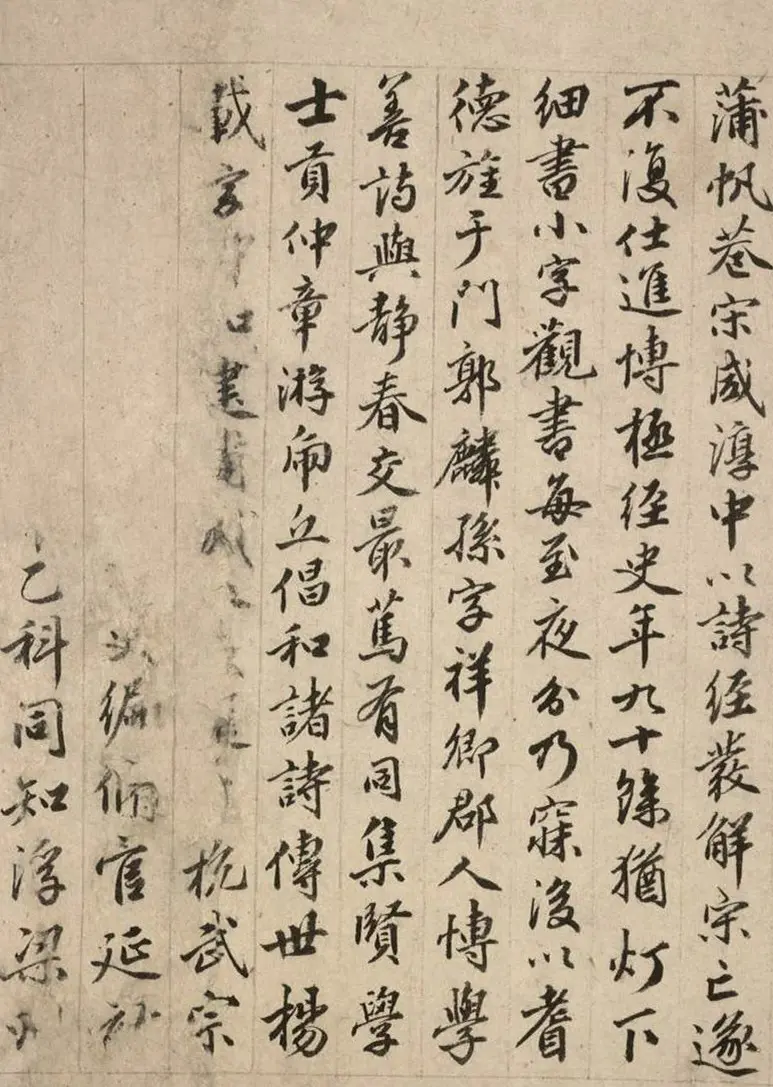 蒲帆巷宋咸淳中以詩經發解宋亡遂
不復仕進博極經史年九十餘猶灯下
細書小字觀書每至夜分乃寐後以耆
德旌于門郭麟孫字祥卿郡人博學
善詩與静春交最篤有同集賢學
士貢仲章游虎丘倡和諸詩傳世楊
載字仲 杭武宗
編脩官延祐
乙科同知浮梁州